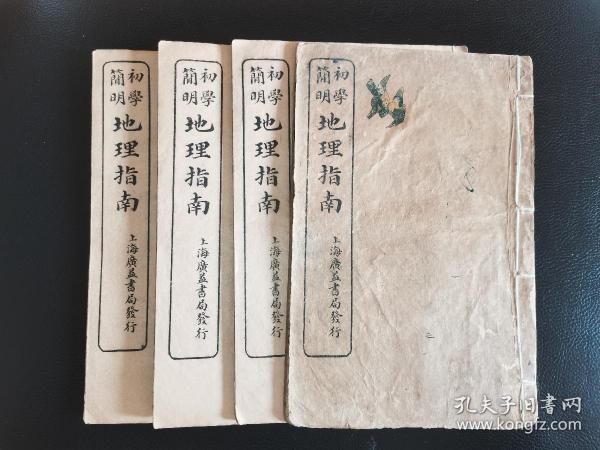 初學
簡明
地理指南
上海廣益書局發行
初學
簡明
地理指南
上海廣益書局發行
初學
簡明
地理指南
上海廣益書局發行
初學
簡明
地理指南
上海廣益書局發行
孔夫子旧書网
www.kongfz.com